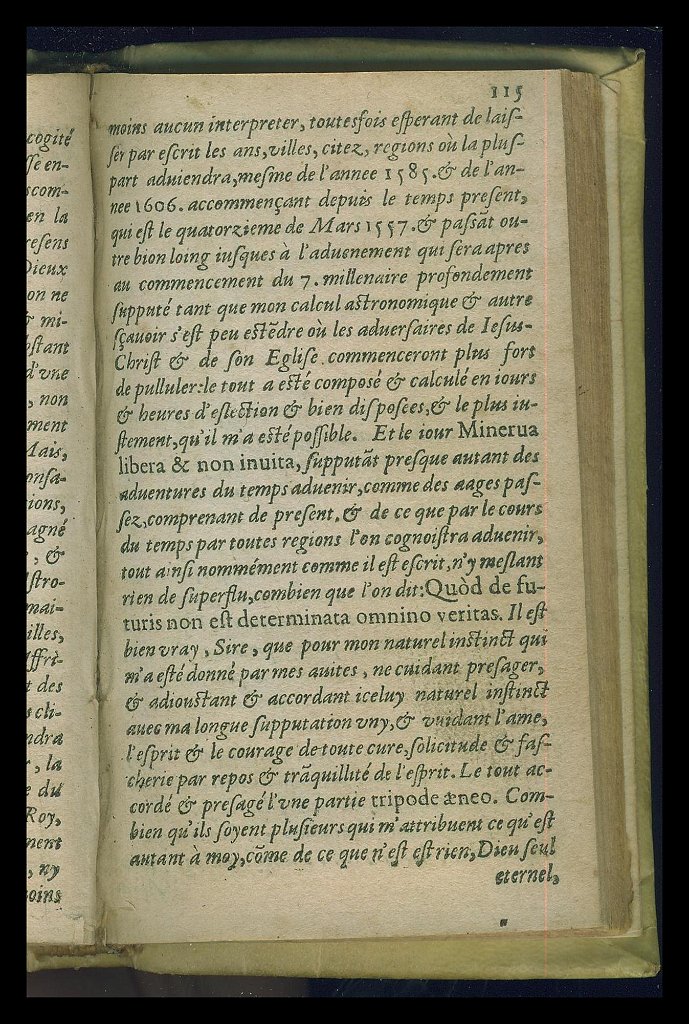 115
moins aucun interpreter, toutesfois eſperant de laiſ-
ſer par eſcrit les ans, villes, citez, regions où la pluſ-
part aduiendra, meſme de l'annee 1585. & de l'an-
nee 1606. accommençant depuis le temps preſent,
qui eſt le quatorzieme de Mars 1557. & paſsãt ou-
tre bion loing iuſques à l'aduenement qui ſera apres
au commencement du 7. millenaire profondement
ſupputé tant que mon calcul aſtronomique & autre
ſçauoir s'eſt peu eſtẽdre où les aduerſaires de Ieſus-
Chriſt & de ſon Egliſe commenceront plus fort
de pulluler: le tout a eſté compoſé & calculé en iours
& heures d'eſlection & bien diſpoſees, & le plus iu-
ſtement, qu'il m'a eſté poſſible. Et le iour Minerua
libera & non inuita, ſupputãt preſque autant des
aduentures du temps aduenir, comme des aages paſ-
ſez, comprenant de preſent, & de ce que par le cours
du temps par toutes regions l'on cognoiſtra aduenir,
tout ainſi nommément comme il eſt eſcrit, n'y meſlant
rien de ſuperflu, combien que l'on dit: Quòd de fu-
turis non eſt determinata omnino veritas. Il eſt
bien vray, Sire, que pour mon naturel inſtinct qui
m'a eſté donné par mes auites, ne cuidant preſager,
& adiouſtant & accordant iceluy naturel inſtinct
auec ma longue ſupputation vny, & vuidant l'ame,
l'eſprit & le courage de toute cure, ſolicitude & faſ-
cherie par repos & trãquillité de l'eſprit. Le tout ac-
cordé & preſagé l'vne partie tripode æneo. Com-
bien qu'ils ſoyent pluſieurs qui m'attribuent ce qu'eſt
autant à moy, cõme de ce que n'eſt eſt rien, Dieu ſeul
eternel,
cogité
ſſe en-
scom-
en la
reſens
Dieux
on ne
& mi-
oſtant
d'vne
, non
ment
Mais,
onſa-
ions,
agné
, &
ſtro-
mai-
illes,
ffri-
t des
s cli-
ndra
, la
e du
Roy,
ment
, ny
oins